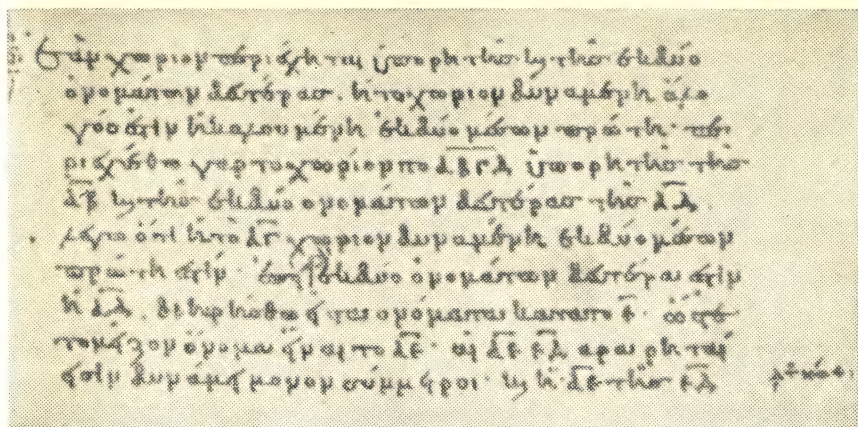 Ἐὰν χωρίον περιέχηται ὑπὸ ῥητῆς καὶ τῆς ἐκ δύο
ὀνομάτων δευτέρας· ἡ τὸ χωρίον δυναμένη ἄλο
γός ἐστιν ἡ καλουμένη ἐκ δύο μέσων πρώτη· πε
ριεχέσθω γὰρ τὸ χωρίον τὸ αβγδ ὑπὸ ῥητῆς τῆς
αβ καὶ τῆς ἐκ δύο ὀνομάτων δευτέρας τῆς αδ·
λέγω ὅτι ἡ τὸ αγ χωρίον δυναμένη ἐκ δύο μέσων
πρώτη ἐστίν· ἐπεὶ ἐκ δύο ὀνομάτων δευτέρα ἐστὶν
ἡ αδ· διηρήσθω εἰς τὰ ὀνόματα κατὰ τὸ ε· ὥστε
τὸ μεῖζον ὄνομα εἶναι τὸ αε· αἱ αε εδ ἄρα ῥηταί
εἰσιν δυνάμει μόνον σύμμετροι· καὶ ἡ αε τῆς εδ